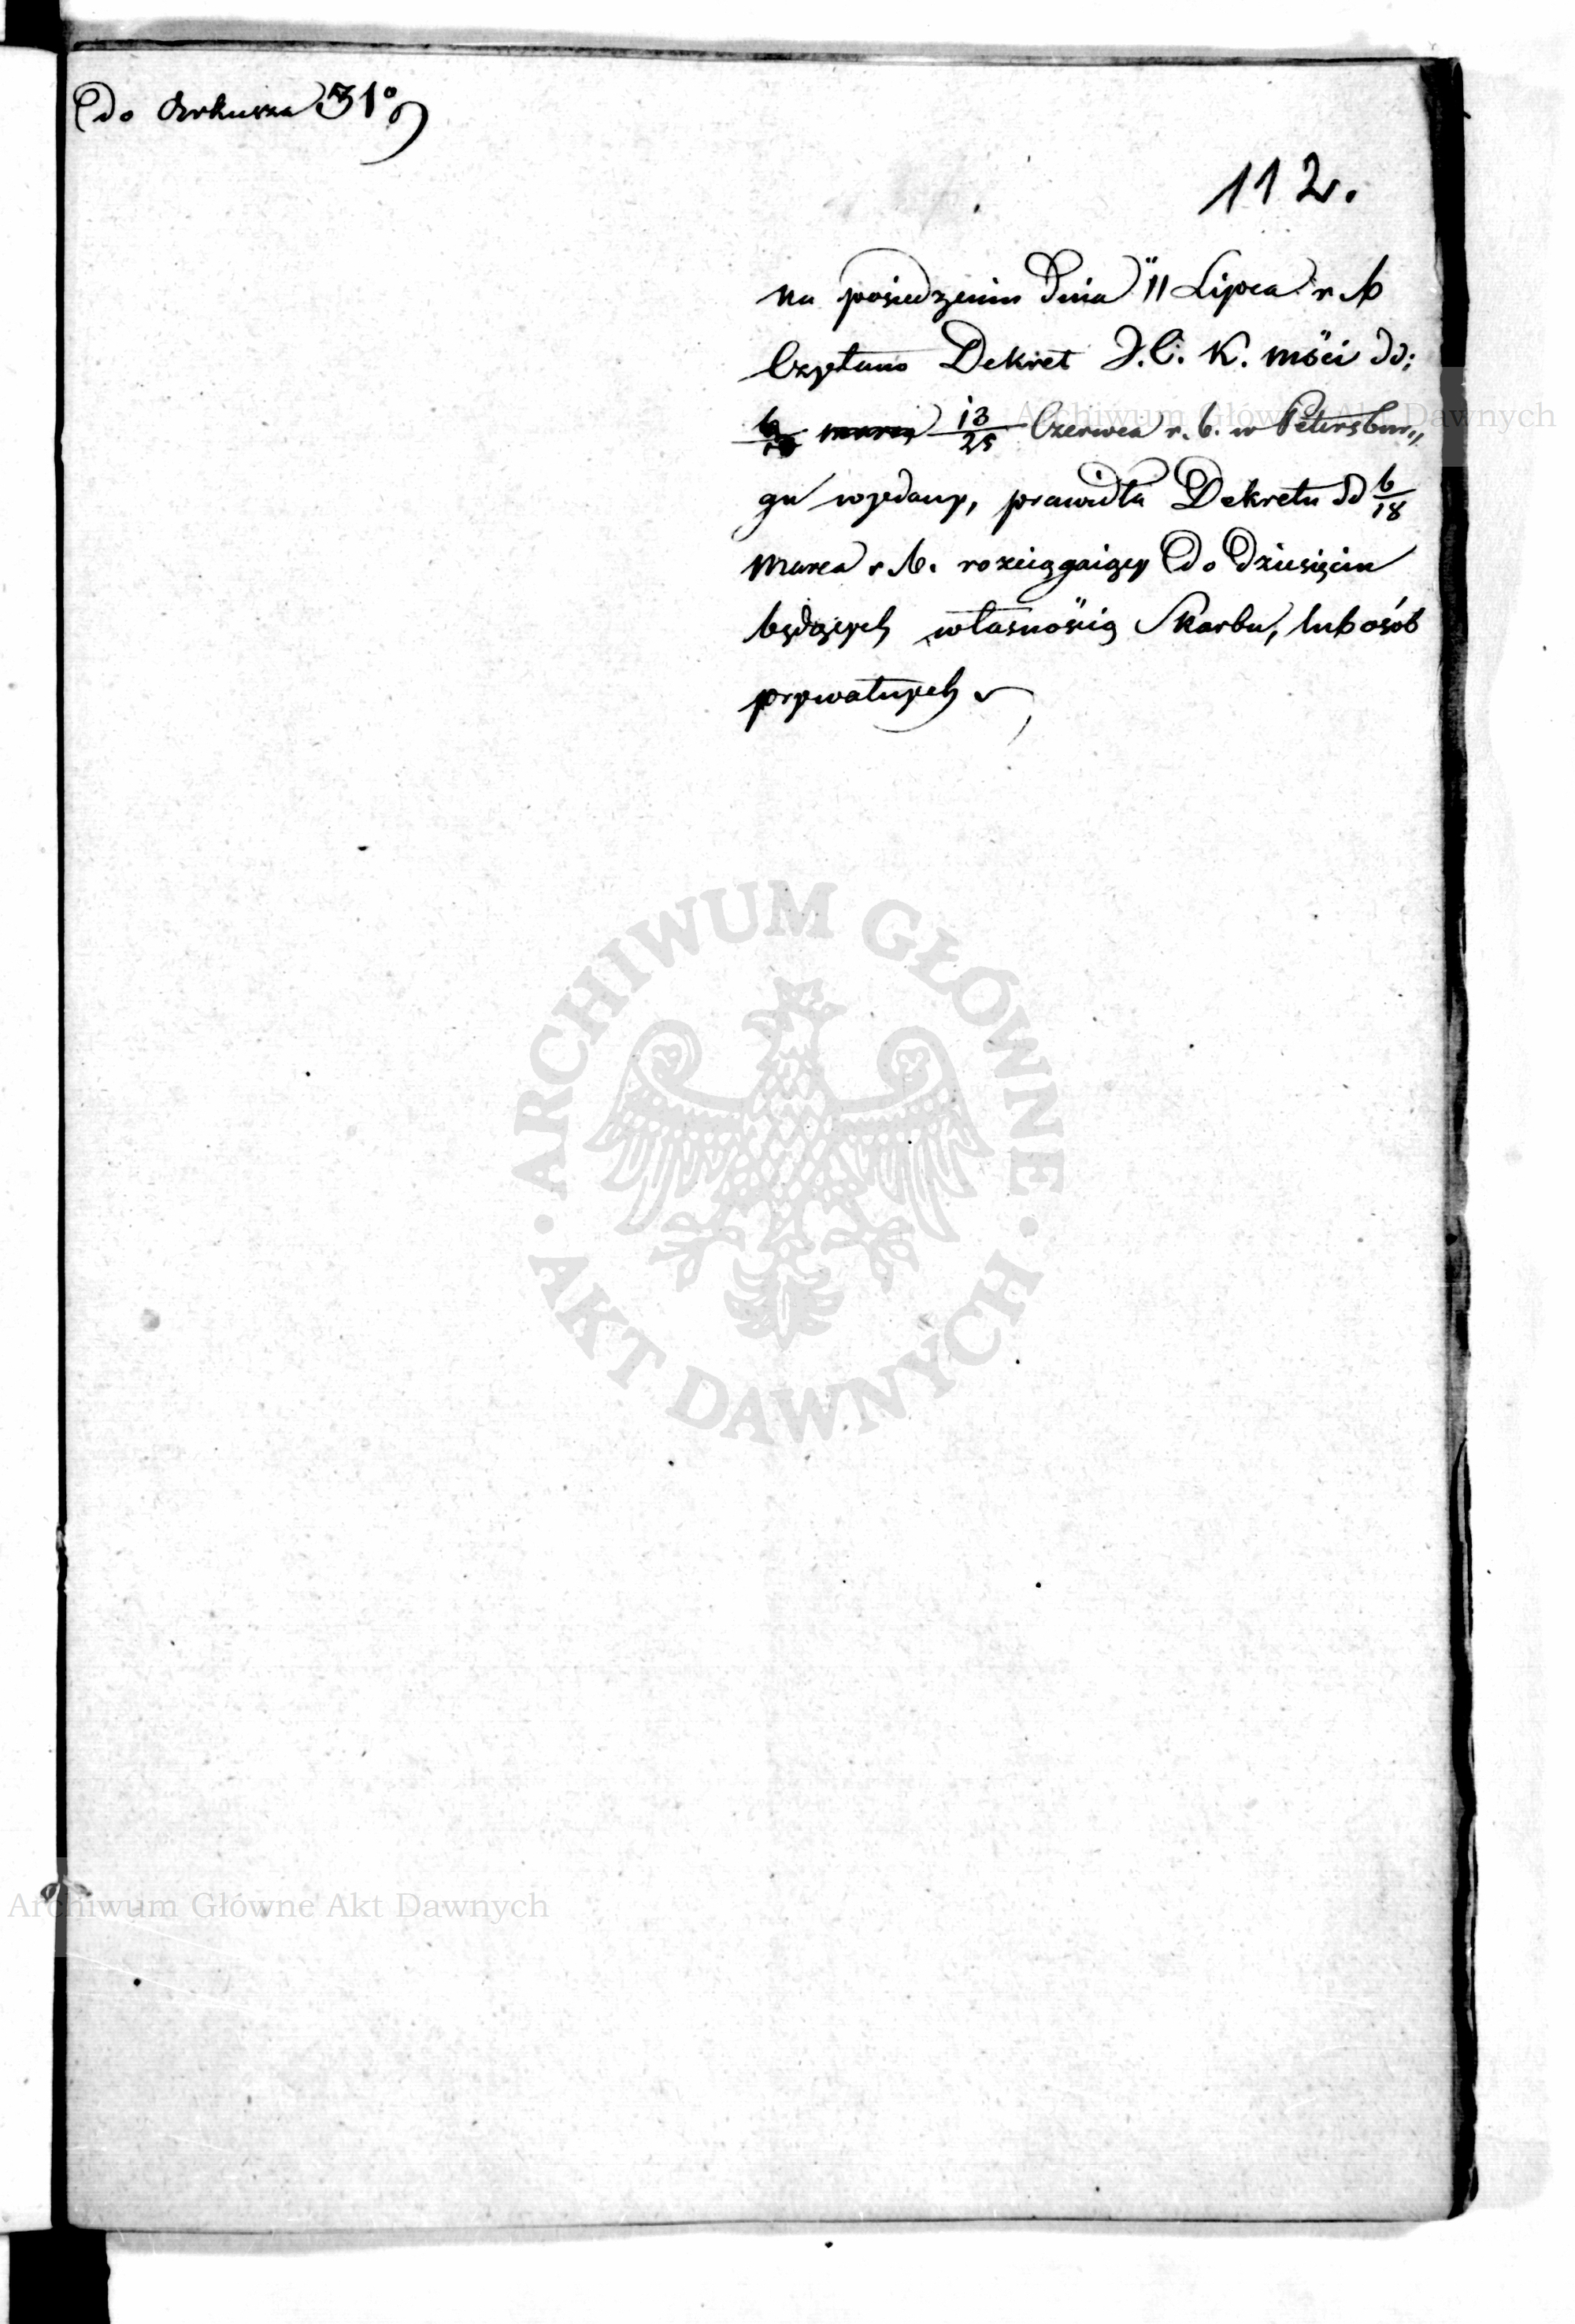 do Arkusza 31°
112.
na posiedzeniu Dnia 11 Lipca r. b.
Czytano Dekret J. C. K. Mości dd:
6/18 marca 13/25 Czerwca r. b. w Petersbur„
gu wydany, prawidła Dekretu dd 6/18
Marca r. b. rozciągaiący do dziesięcin
będących własnością Skarbu, lub osób
prywatnych
Archiwum Główne Akt Dawnych
ARCHIWUM GŁÓWNE
AKT DAWNYCH
Archiwum Główne Akt Dawnych